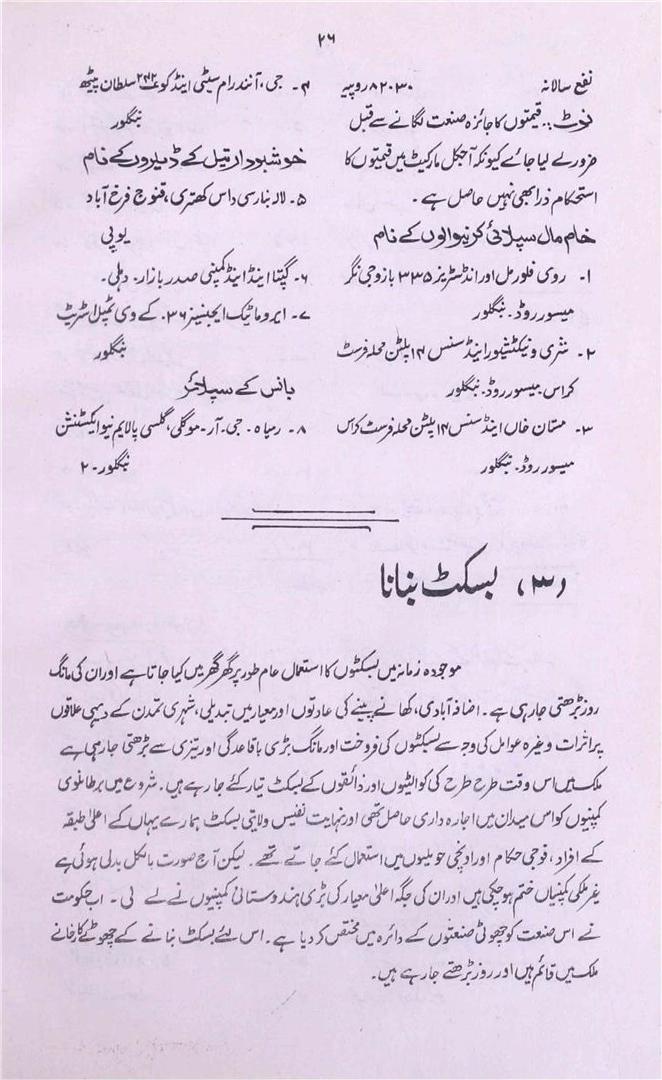 ۲۶
نفع سالانہ ۸۲۰۳۰ روپیہ
نوٹ۔۔ قیمتوں کا جائزہ صنعت لگانے سے قبل
ضرور لے لیا جائے کیونکہ آجکل مارکیٹ میں قیمتوں کا
استحکام ذرا بھی نہیں حاصل ہے۔
خام مال سپلائی کرنیوالوں کے نام
۱۔ روی فلور مل اور انڈسٹریز ۳۳۵ بازوجی نگر
میسور روڈ۔ بنگلور
۲۔ شری وینکٹیشور اینڈ سنس ۱۴ پلٹن محلہ فرسٹ
کراس میسور روڈ۔ بنگلور
۳۔ مستان خاں اینڈ سنس ۱۴ پلٹن محلہ فرسٹ کراس
میسور روڈ۔ بنگلور
۴۔ جی، آنند رام سیٹی اینڈ کو ۲۴۲ سلطان پیٹھ
بنگلور
خوشبودار تیل کے ڈیلروں کے نام
۵۔ لالہ بنارسی داس کھتری، قنوج فرخ آباد
یوپی
۶۔ گپتا اینڈ اینڈ کمپنی صدر بازار۔ دہلی۔
۷۔ ایروماٹیک ایجنسیز ۳۶، کے وی ٹمپل اسٹریٹ
بنگلور
بانس کے سپلائر
۸۔ رمیاہ۔ جی۔ آر۔ موگلی، گلسی پالایم نیو ایکسٹنشن
بنگلور۔ ۲
(۳) بسکٹ بنانا
موجودہ زمانہ میں بسکٹوں کا استعمال عام طور پر گھر گھر میں کیا جاتا ہے اور ان کی مانگ
روز بڑھتی جا رہی ہے۔ اضافہ آبادی، کھانے پینے کی عادتوں اور معیار میں تبدیلی، شہری تمدن کے دیہی علاقوں
پر اثرات وغیرہ عوامل کی وجہ سے بسکٹوں کی فروخت اور مانگ بڑی باقاعدگی اور تیزی سے بڑھتی جا رہی ہے
ملک میں اس وقت طرح طرح کی کوالیٹوں اور ذائقوں کے بسکٹ تیار کئے جا رہے ہیں۔ شروع میں برطانوی
کمپنیوں کو اس میدان میں اجارہ داری حاصل تھی اور نہایت نفیس ولایتی بسکٹ ہمارے یہاں کے اعلیٰ طبقہ
کے افراد، فوجی حکام اور اونچی حویلیوں میں استعمال کئے جاتے تھے۔ لیکن آج صورت بالکل بدلی ہوئی ہے
غیر ملکی کمپنیاں ختم ہو چکی ہیں اور ان کی جگہ اعلیٰ معیار کی بڑی ہندوستانی کمپنیوں نے لے لی۔ اب حکومت
نے اس صنعت کو چھوٹی صنعتوں کے دائرہ میں مختص کر دیا ہے۔ اس لئے بسکٹ بنانے کے چھوٹے کارخانے
ملک میں قائم ہیں اور روز بڑھتے جا رہے ہیں۔